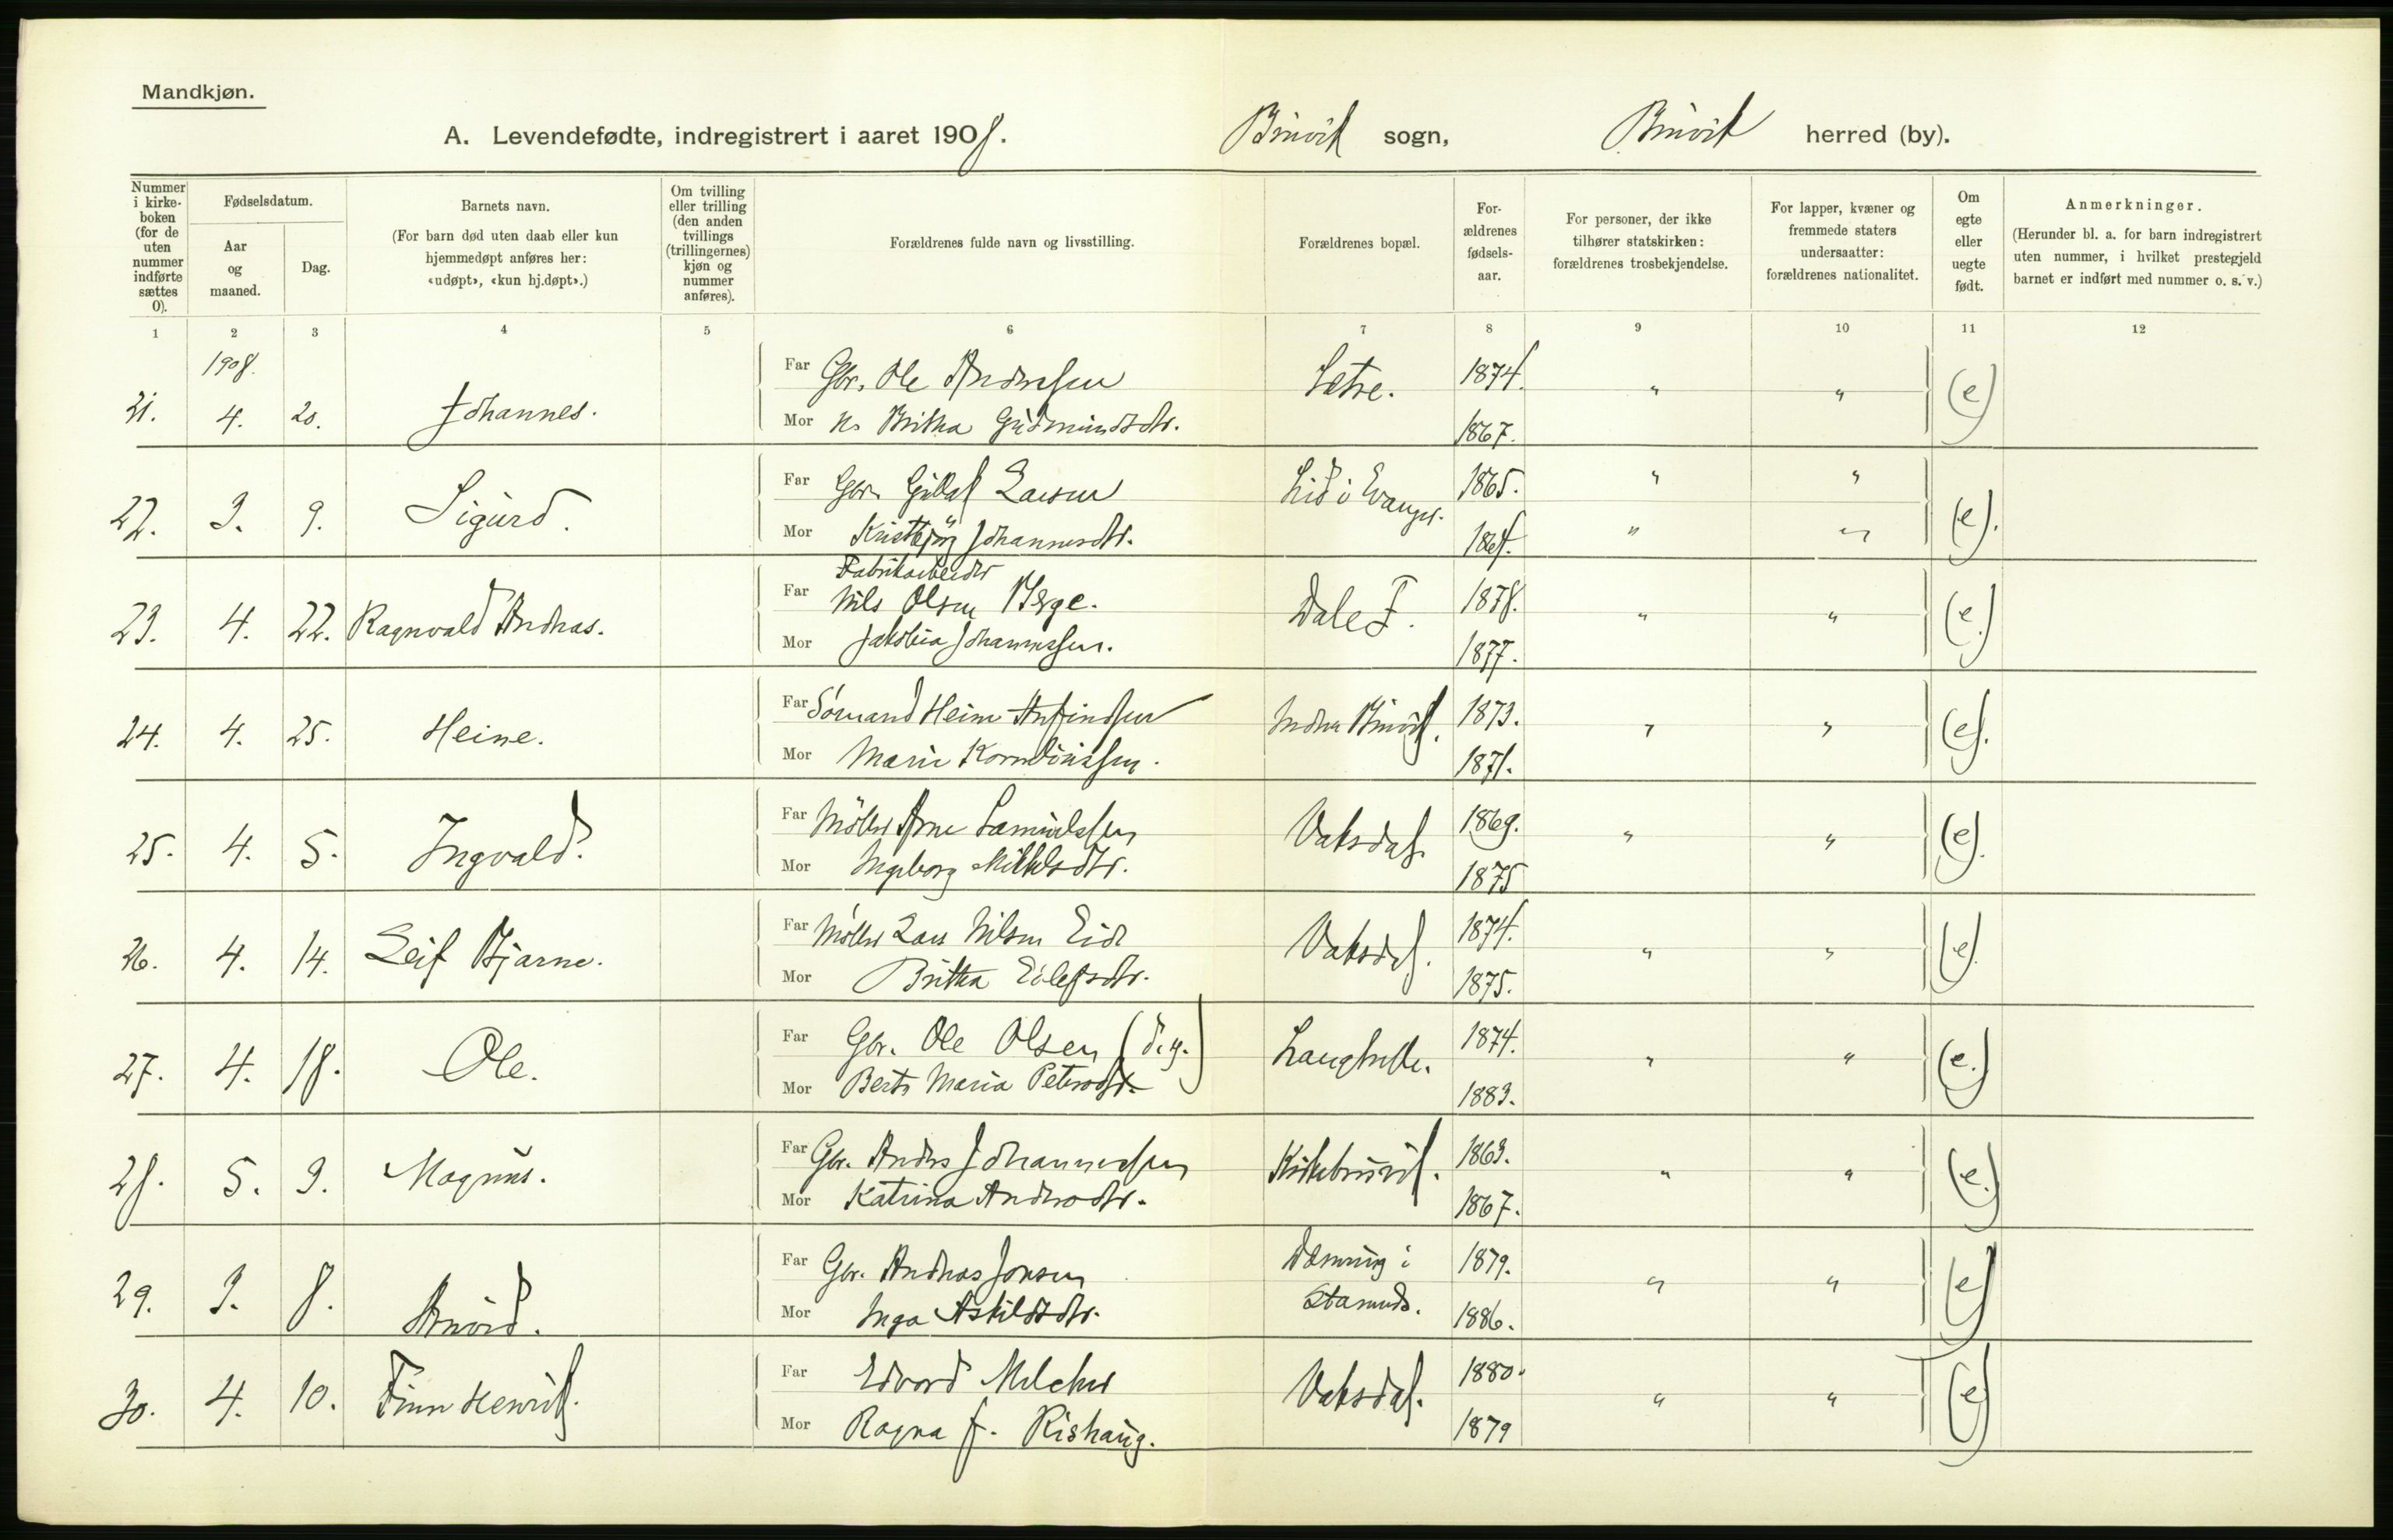 Mandkjøn.
A. Levendefødte, indregistrert i aaret 1908. Bruvik sogn, Bruvik herred (by).
Nummer i kirkeboken (for de uten nummer indførte sættes 0).
Fødselsdatum.
Aar og maaned.
Dag.
Barnets navn.
(For barn død uten daab eller kun hjemmedøpt anføres her: «udøpt», «kun hj.døpt».)
Om tvilling eller trilling (den anden tvillings (trillingernes) kjøn og nummer anføres).
Forældrenes fulde navn og livsstilling.
Forældrenes bopæl.
Forældrenes fødselsaar.
For personer, der ikke tilhører statskirken: forældrenes trosbekjendelse.
For lapper, kvæner og fremmede staters undersaatter: forældrenes nationalitet.
Om egte eller uegte født.
Anmerkninger.
(Herunder bl. a. for barn indregistrert uten nummer, i hvilket prestegjeld barnet er indført med nummer o. s. v.)
1 2 3 4 5 6 7 8 9 10 11 12
1908.
Far Gbr. Ole Andersen Sætre. 1874. " "
21. 4. 20. Johannes. (e)
Mor Britha Gudmundsdtr. 1867.
Far Gbr. Larsen Lid i 1865. " "
22. 3. 9. Sigurd. (e).
Mor Kristbjørg Johannesdtr. " "
Fabrikarbeider
Far Nils Olsen Berge. Dale F. 1878. " "
23. 4. 22. Ragnvald Andreas. (e.)
Mor Jakobia Johannessen. 1877.
Far Sømand Heine Anfindsen Indre Bruvik. 1873. " "
24. 4. 25. Heine. (e).
Mor Marie 1871.
Far Møller Arne Samuelsen Vaksdal. 1869. " "
25. 4. 5. Ingvald. (e).
Mor Ingeborg Mikkelsdtr. 1875
Far Møller Lars Nilsen Eide Vaksdal. 1874. " "
26. 4. 14. Leif Bjarne. (e).
Mor Britha Eilefsdtr. 1875.
Far Gbr. Ole Olsen (d.y.) Langhelle. 1874. " "
27. 4. 18. Ole. (e.)
Mor Berta Maria Petersdtr. 1883.
Far Gbr. Anders Johannessen Kirkebruvik. 1863. " "
28. 5. 3. Magnus. (e.)
Mor Katrina Andersdtr. 1867.
Far Gbr. Andreas Jonsen i 1879. " "
29. 3. 8. (e)
Mor Inga Askildsdtr. Stamnes. 1886.
Far Edvard Melcher Vaksdal. 1880. " "
30. 4. 10. Finn Henrik. (e)
Mor Ragna J. Rishaug. 1879